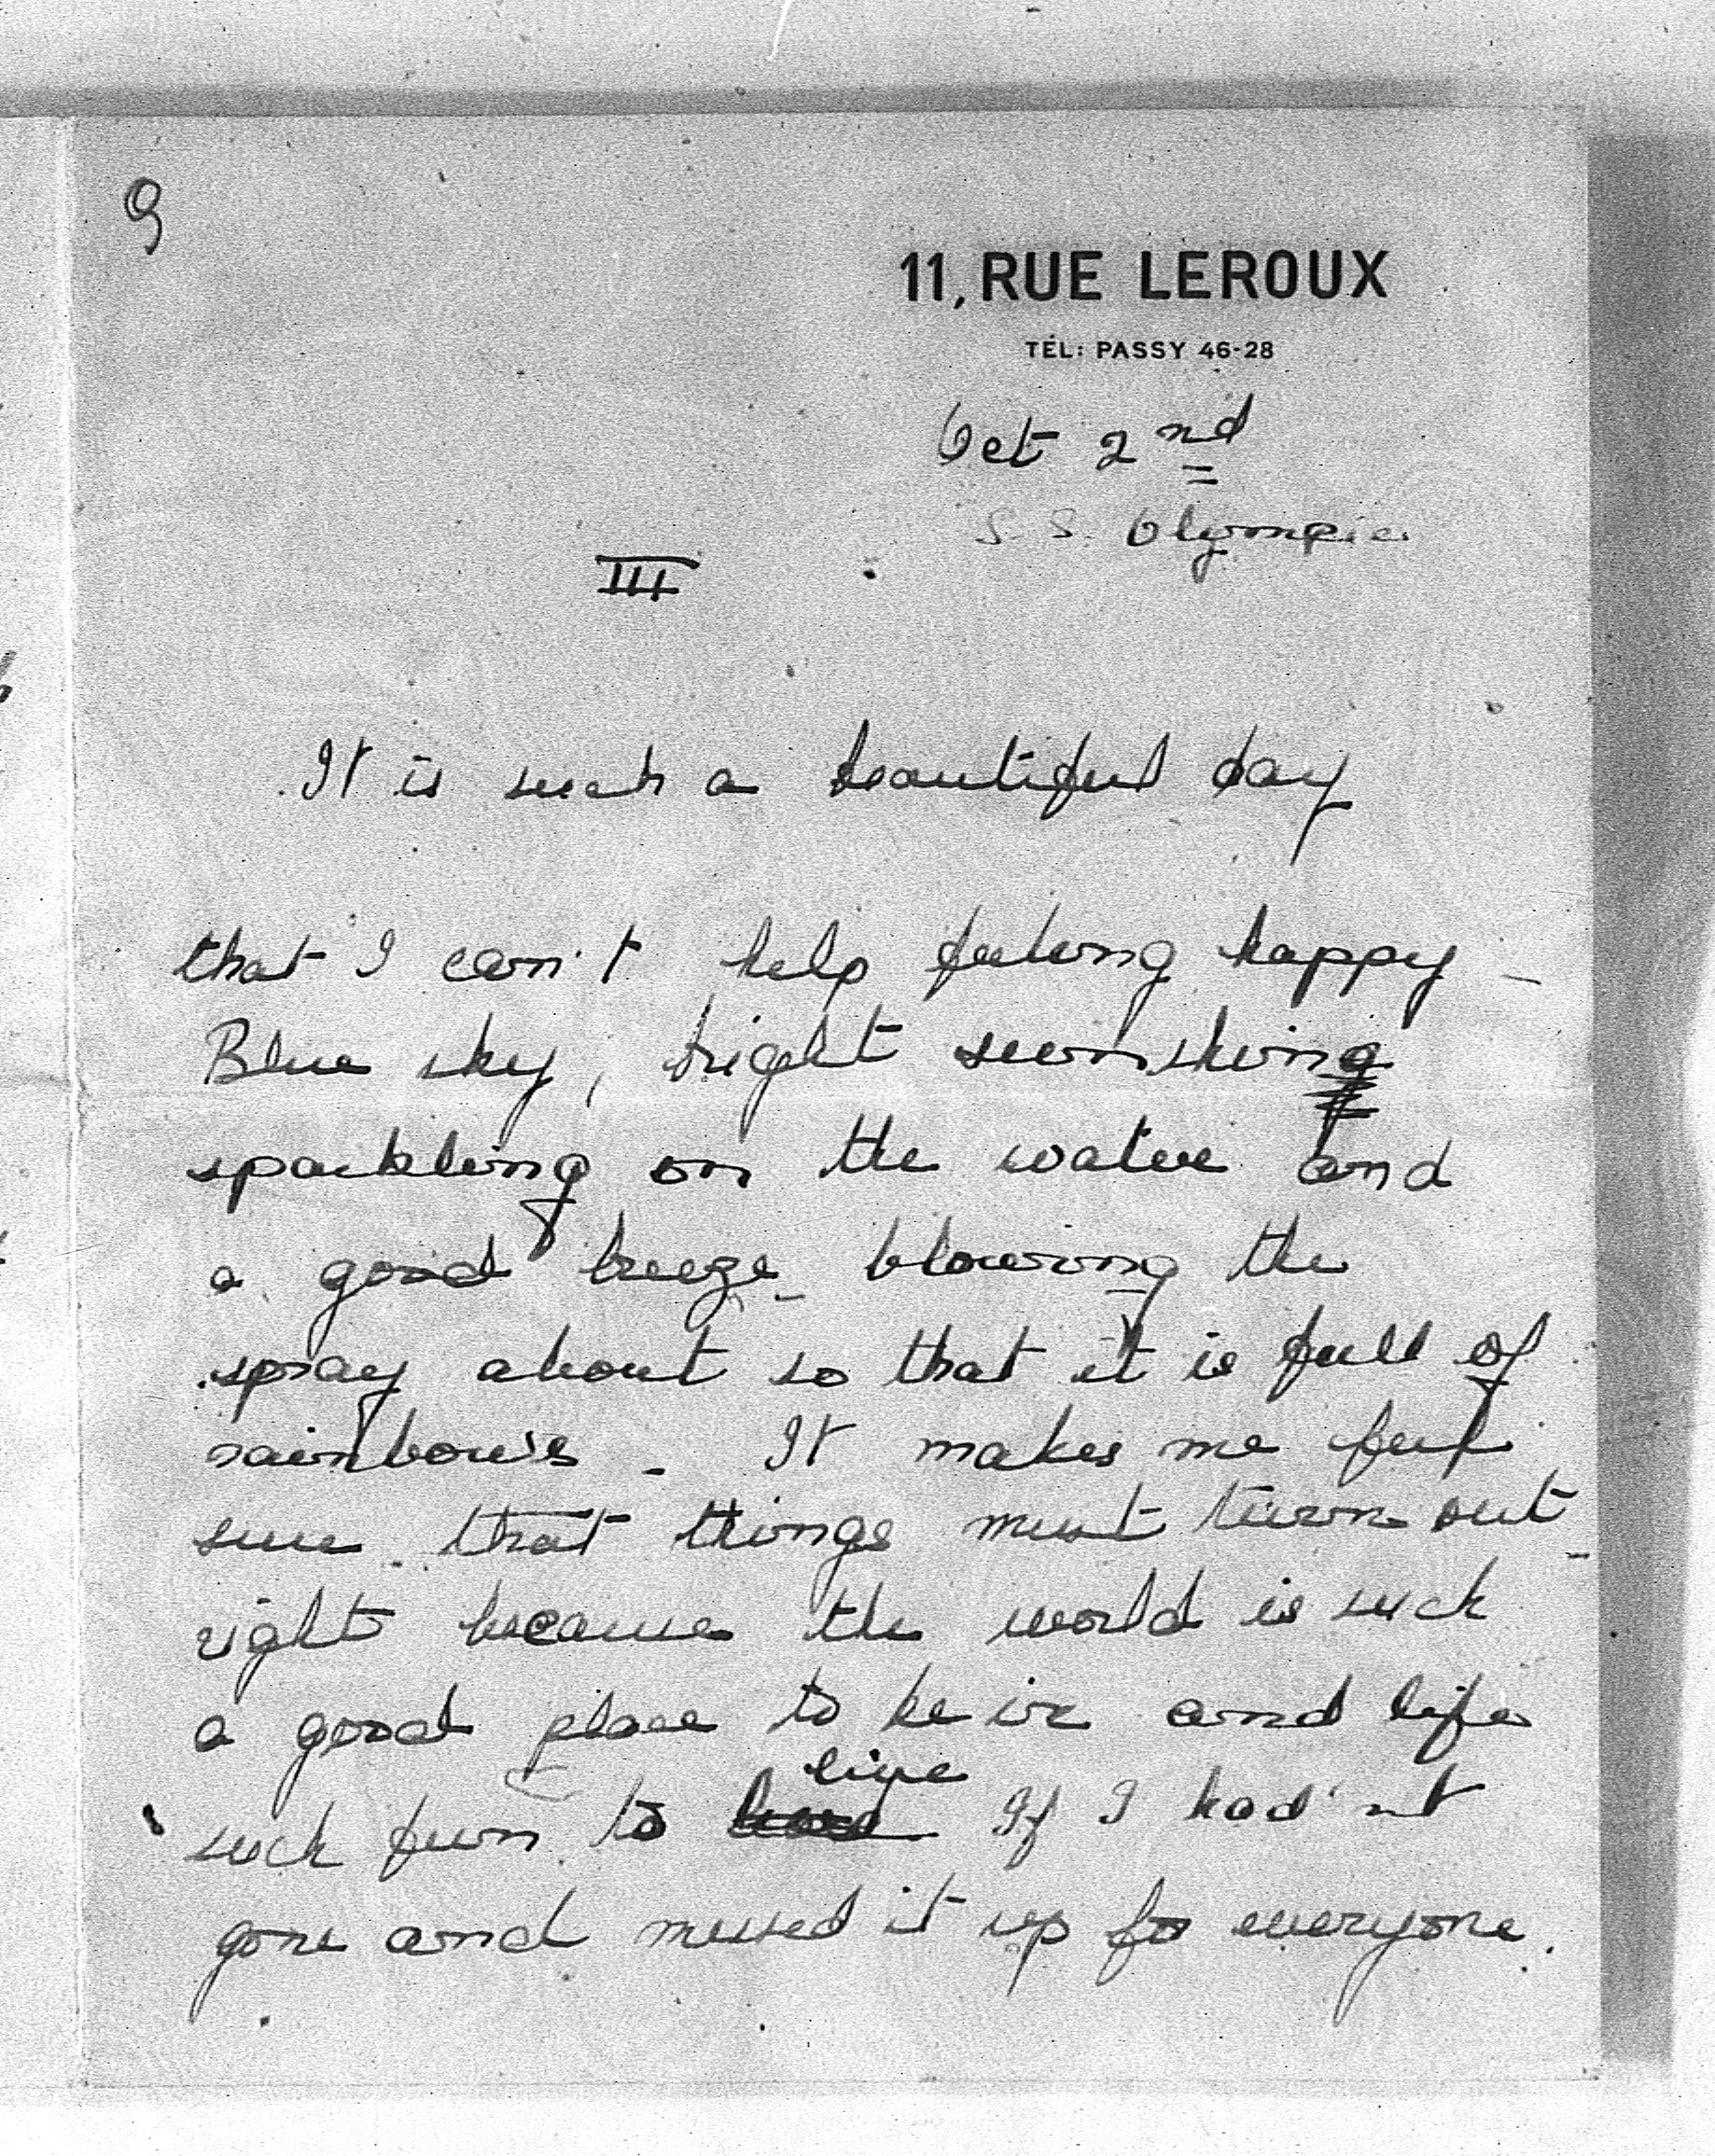 9
11, RUE LEROUX
TÉL: PASSY 46-28
Oct 2nd
S.S. Olympic
III
It is such a beautiful day
that I can't help feeling happy –
Blue sky, bright sunshing
sparkling on the water and
a good breeze blowing the
spray about so that it is full of
rainbows – It makes me feel
sure that things must turn out
right because the world is such
a good place to be in and life
live
such fun to If I had'nt
gone and messed it up for everyone.